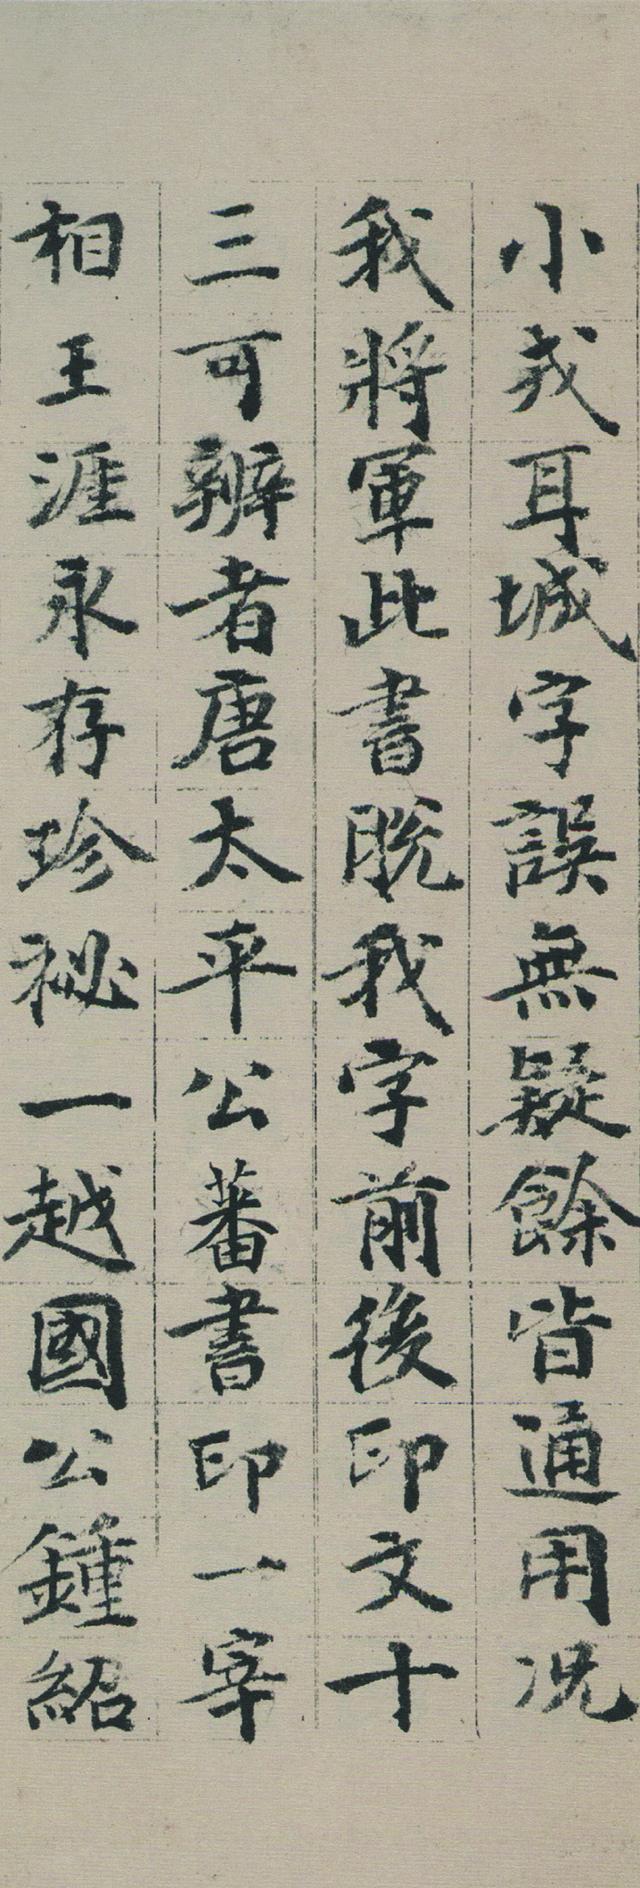 小戎耳城字誤無疑餘皆通用况
我將軍此書脫我字前後印文十
三可辨者唐太平公蕃書印一宰
相王涯永存珍祕一越國公鍾紹